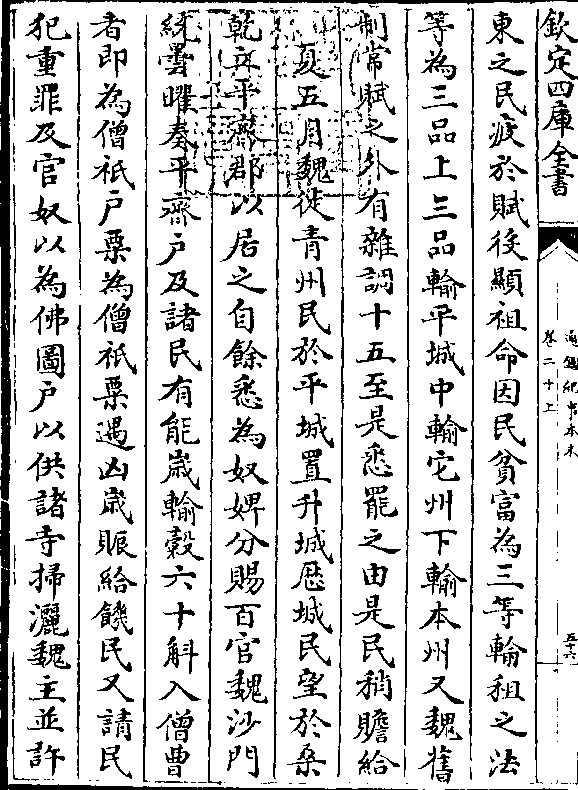 欽定四庫全書
通鑑紀事本末
卷二十上
五十六
東之民疲於賦役顯祖命因民貧富為三等輸租之法
等為三品上三品輸平城中輸它州下輸本州又魏舊
制常賦之外有雜調十五至是悉罷之由是民稍贍給
夏五月魏徙青州民於平城置升城厯城民望於桑
乾立平齊郡以居之自餘悉為奴婢分賜百官魏沙門
統曇曜奏平齊户及諸民有能歲輸穀六十斛入僧曹
者即為僧祇户粟為僧祇粟遇凶歲賑給饑民又請民
犯重罪及官奴以為佛圖户以供諸寺掃灑魏主並許